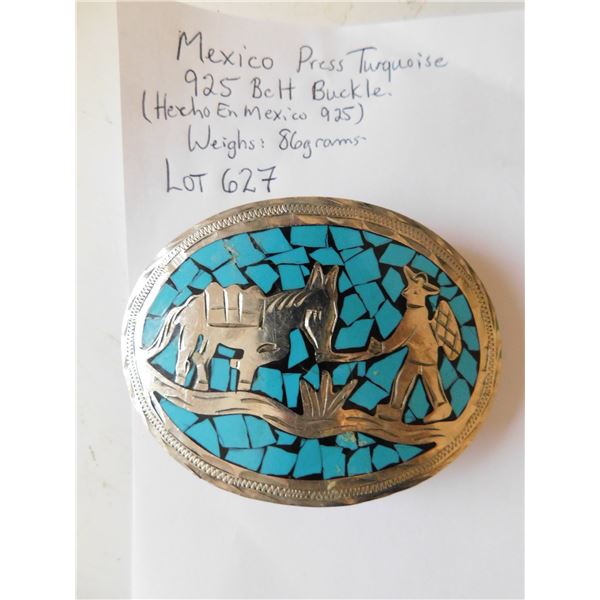 Mexico Press Turquoise
925 Belt Buckle.
(Hecho En Mexico 925)
Weighs: 86grams
LOT 627